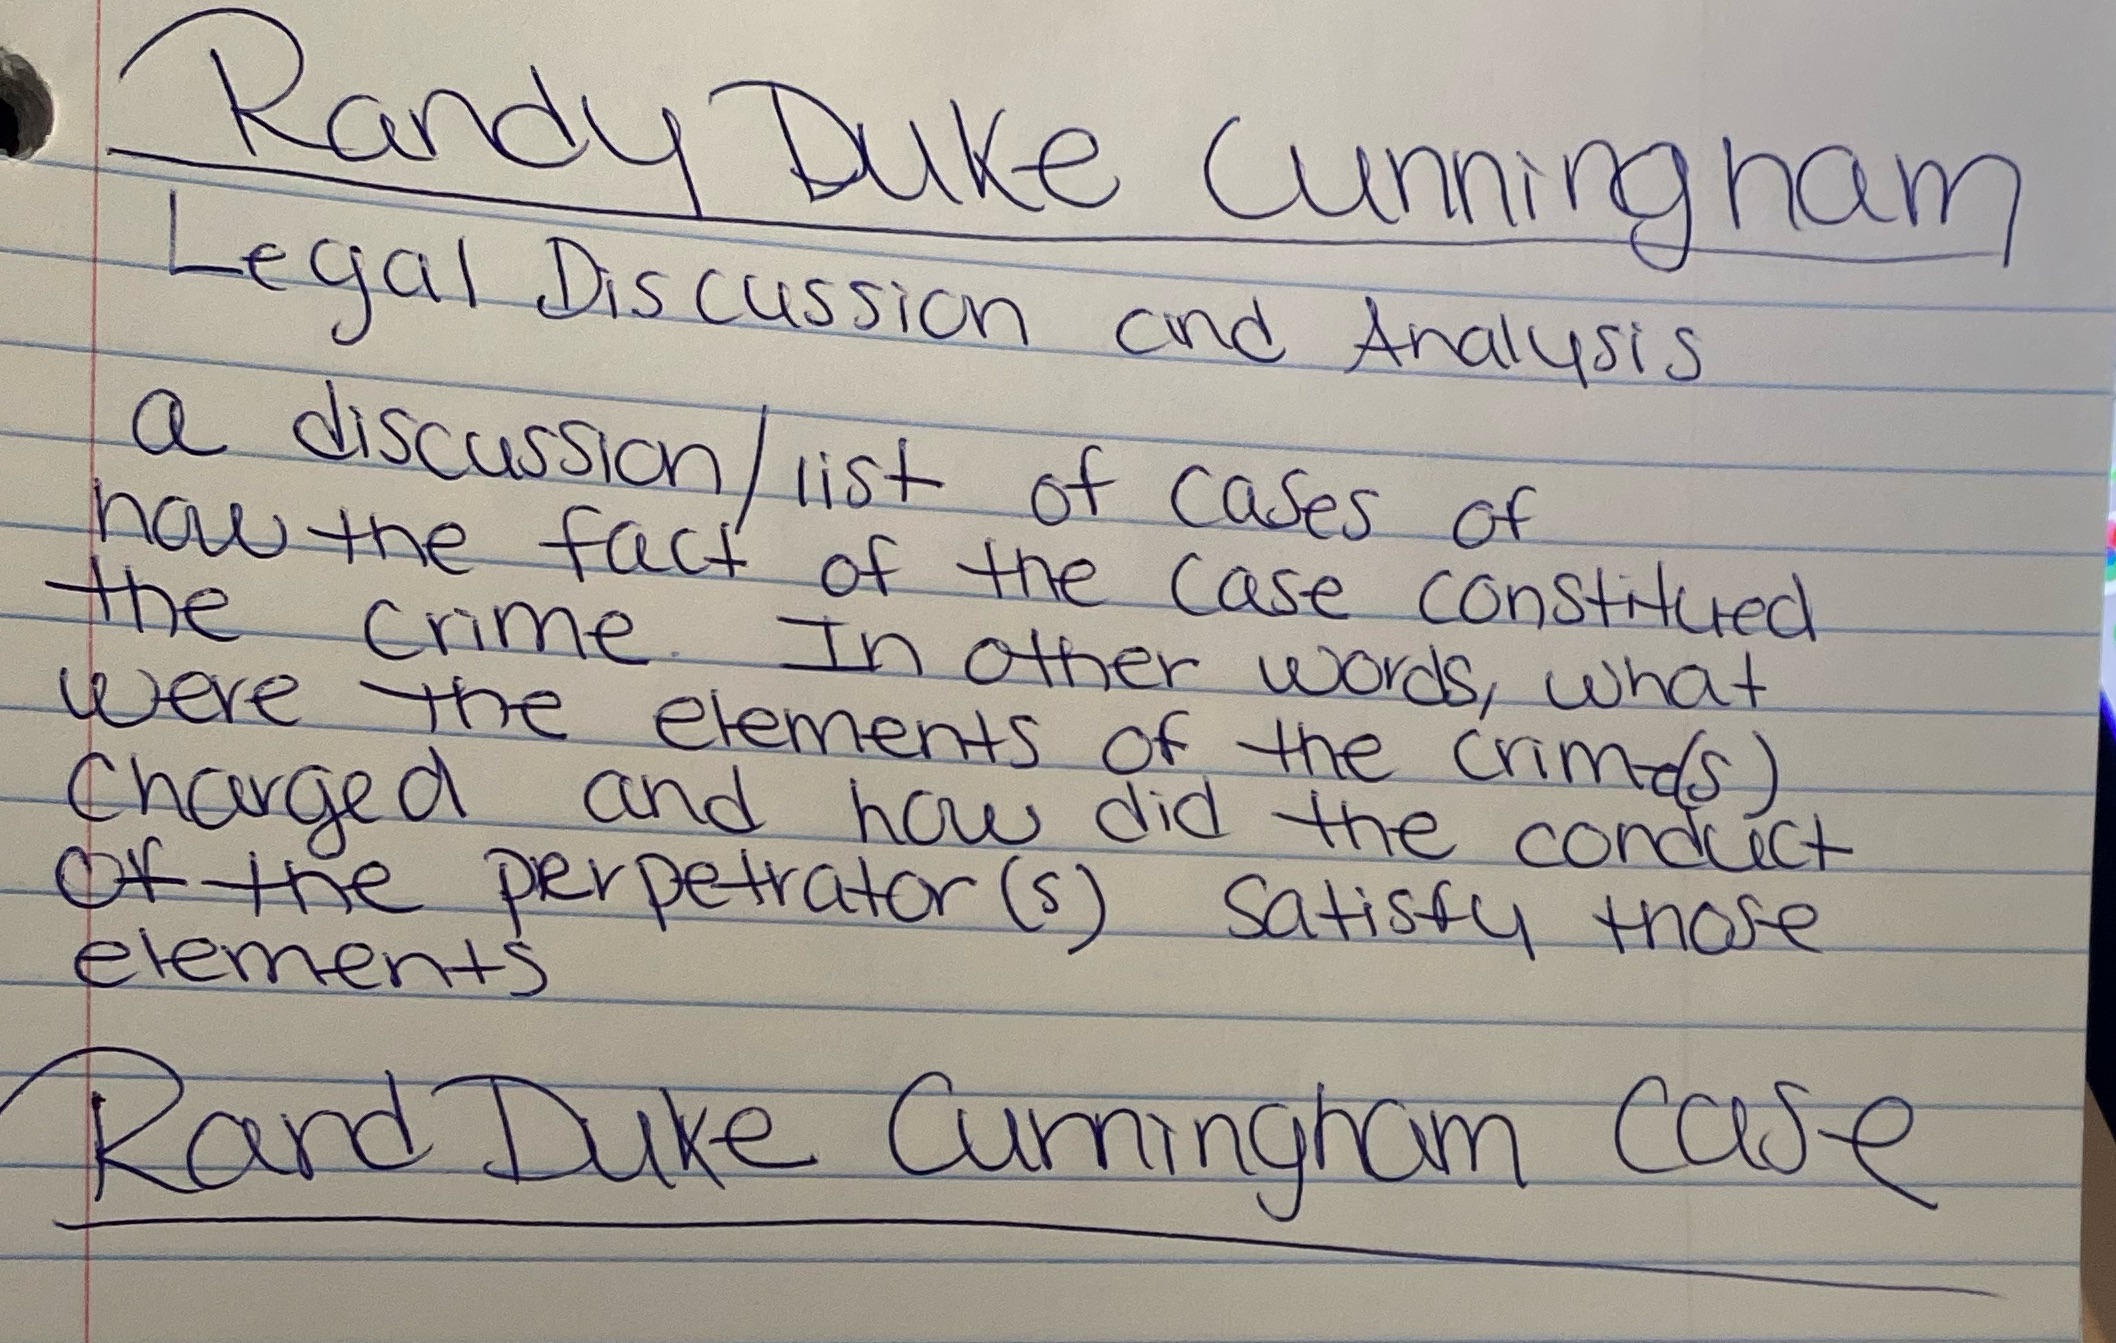 Randy Duke Cunningham
Legal Discussion and Analysis
a discussion/list of cases of
how the fact of the case constitued
the crime. In other words, what
were the elements of the crime(s)
Charged and how did the conduct
of the perpetrator(s) satisfy those
elements
Rand Duke Cunningham Case